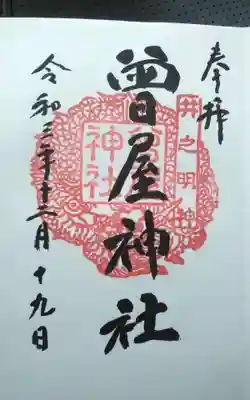 奉拝
井之明神
曾屋神社
曾屋
神社
令和三年十二月十九日